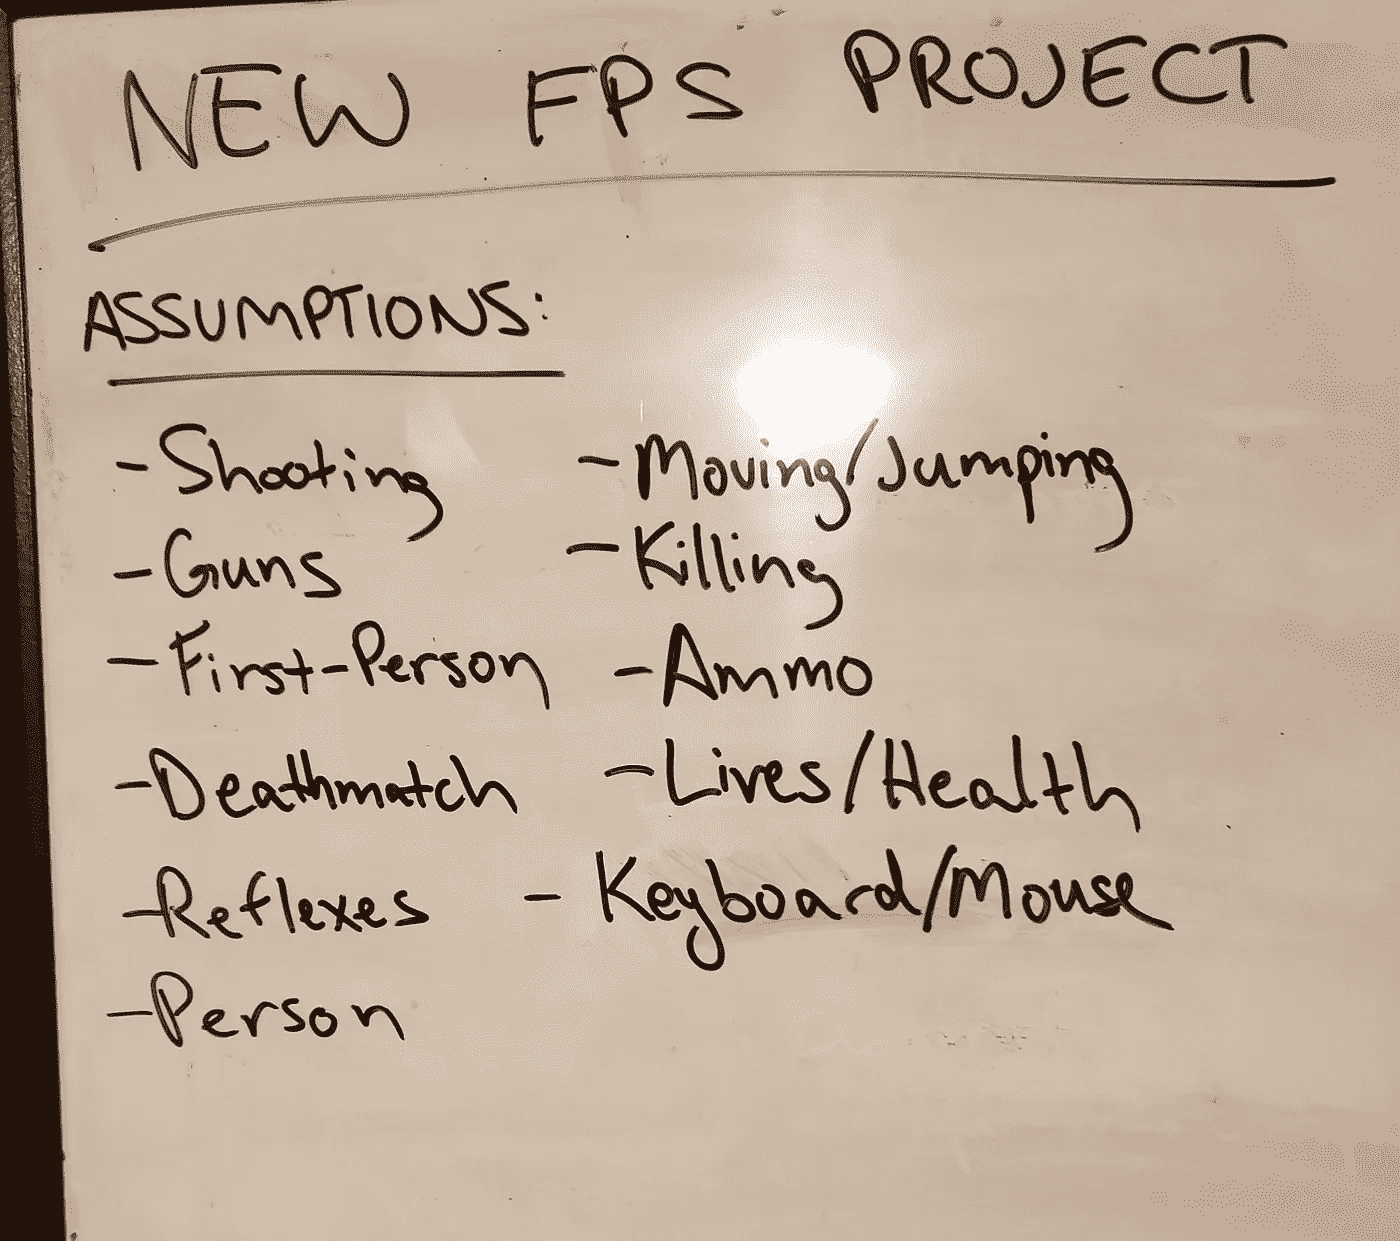 NEW FPS PROJECT
ASSUMPTIONS:
- Shooting
- Guns
- First-Person
- Deathmatch
- Reflexes
- Person
- Moving/Jumping
- Killing
- Ammo
- Lives/Health
- Keyboard/Mouse